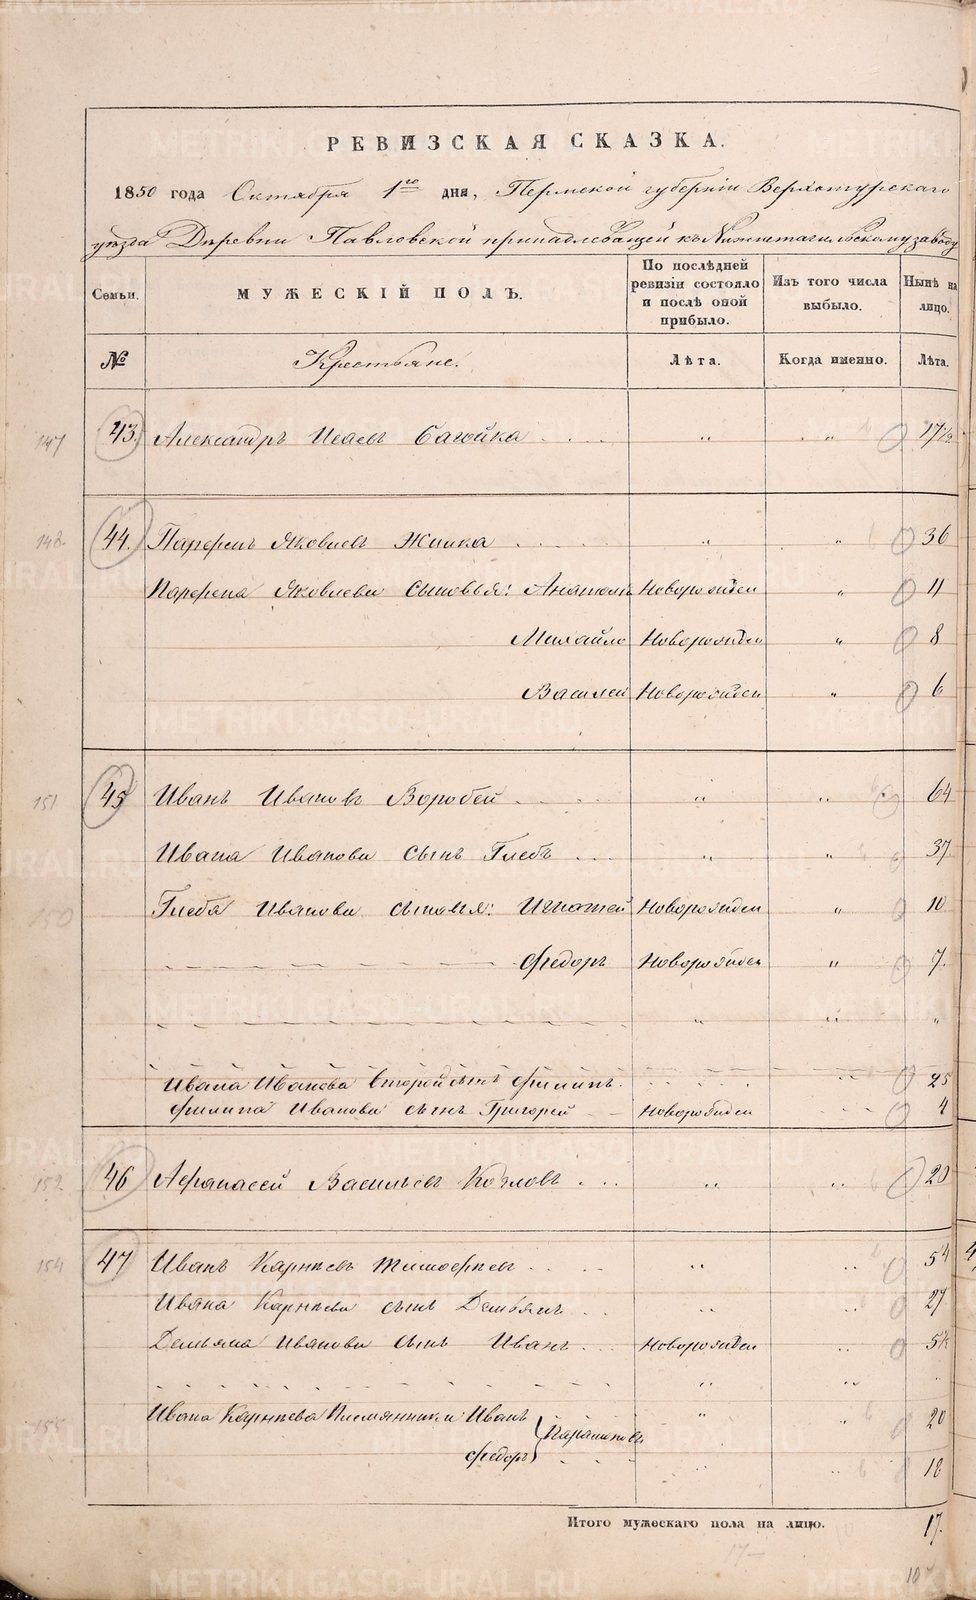 РЕВИЗСКАЯ СКАЗКА.
1850 года Октября 1го дня, Пермской губернiи Верхотурскаго
уѣзда Деревни Павловской принадлежащей къ Нижнетагильскому заводу
Семьи. МУЖЕСКIЙ ПОЛЪ. По послѣдней ревизiи состояло и послѣ оной прибыло. Изъ того числа выбыло. Нынѣ на лицо.
№ Крестьяне. Лѣта. Когда именно. Лѣта.
147 43. Александръ Исаевъ " " 17½
148 44. Парфенъ Яковлевъ " " 36
Парфена Яковлева сыновья: Анатолiй Новорожден " 11
Михайло Новорожден " 8
Василей Новорожден " 6
151 45 Иванъ Ивановъ Воробей " " 64
Ивана Иванова сынъ Глебъ " " 37
150 Глеба Иванова сыновья: Игнатей Новорожден " 10
Федоръ Новорожден " 7
" " "
Ивана Иванова второй сынъ Филипъ. 25
Филипа Иванова сынъ Григорей Новорожден 4
152 46 Афанасей Васильевъ Козловъ " " 20
154 47 Иванъ Карпѣевъ Тимофѣевъ " " 54
Ивана Карпѣева сынъ Демьянъ " " 27
Демьяна Иванова сынъ Иванъ Новорожден " 5½
155 Ивана Карпѣева Племянники Иванъ " " 20
Федоръ " " 18
Итого мужескаго пола на лицо. 17.
17
METRIKI.GASO-URAL.RU